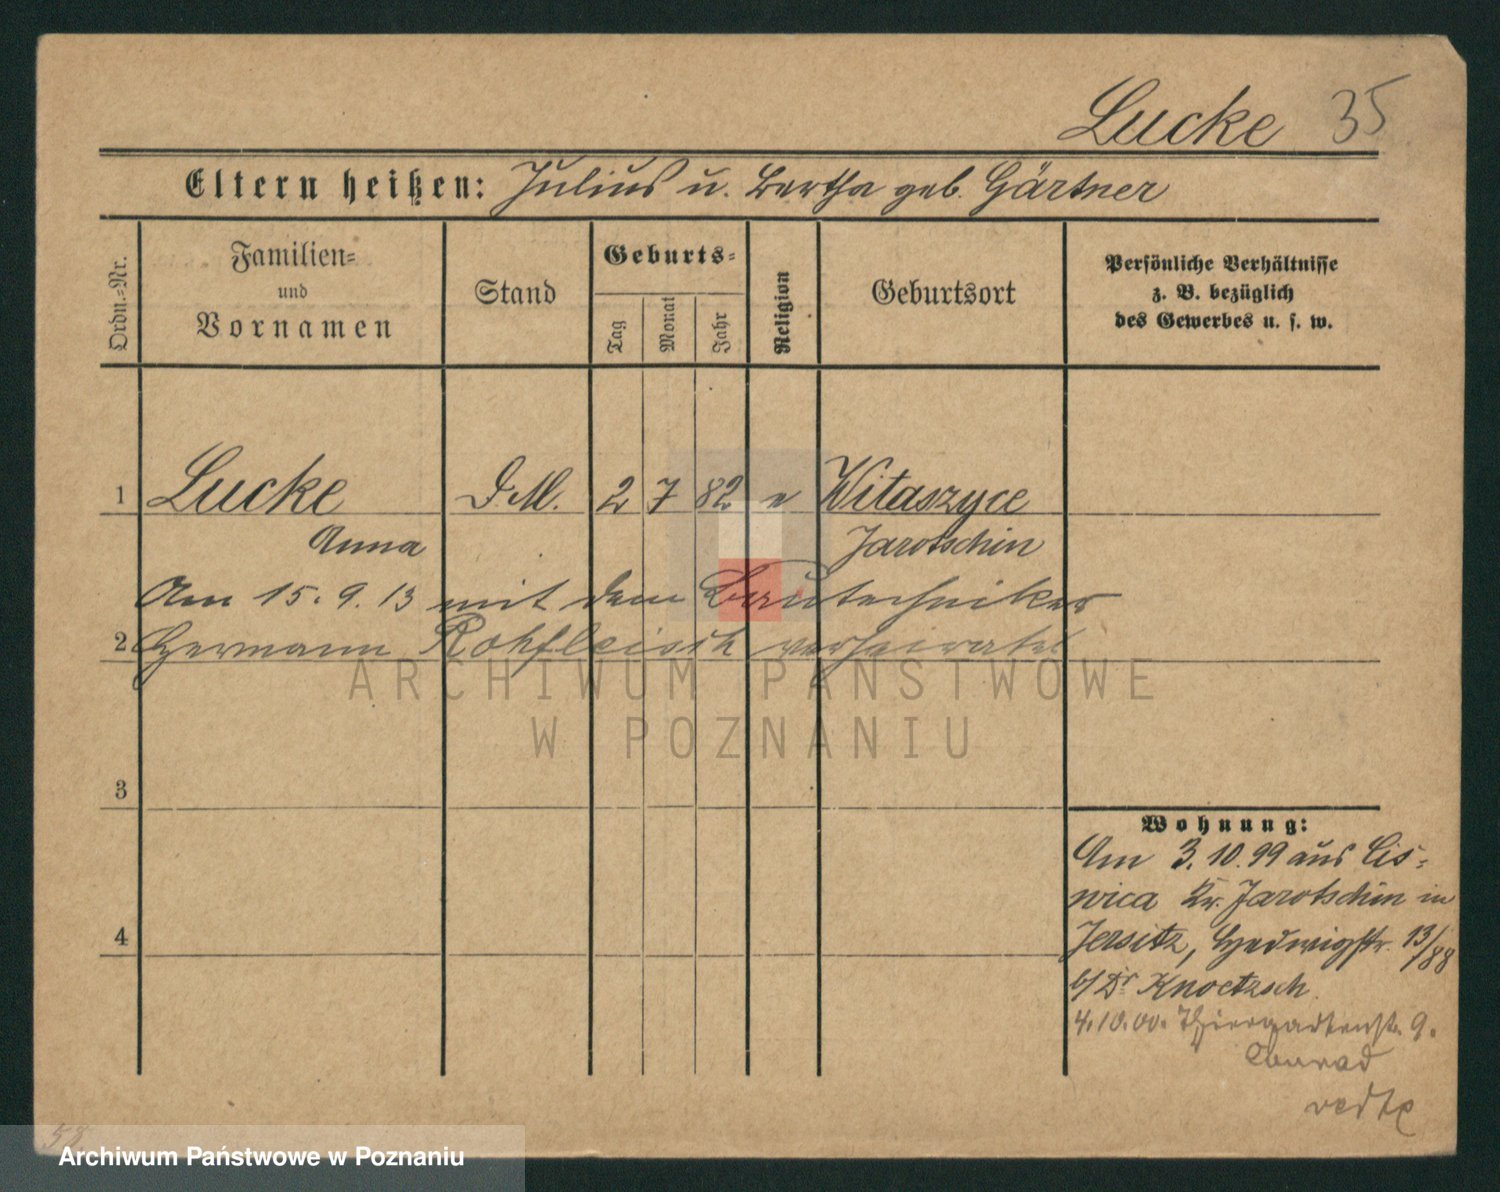 Lucke 35
Eltern heißen: Julius u. Bertha geb. Gärtner
Ordn.-Nr.
Familien-
und
Vornamen
Stand
Geburts-
Tag
Monat
Jahr
Religion
Geburtsort
Persönliche Verhältnisse
z. B. bezüglich
des Gewerbes u. s. w.
1 Lucke D.M. 2 7 82 e Witaszyce
Anna Jarotschin
Am 15. 9. 13 mit dem Bautechniker
2 Hermann Rohfleisch verheiratet
3
4
Wohnung:
Am 3. 10. 99 aus Cis-
wica Kr. Jarotschin in
Jersitz, Hedwigstr. 13/88
b/ Dr Knoetzsch
4. 10. 00. Thiergartenstr. 9.
Conrad
ARCHIWUM PAŃSTWOWE
W POZNANIU
58
Archiwum Państwowe w Poznaniu